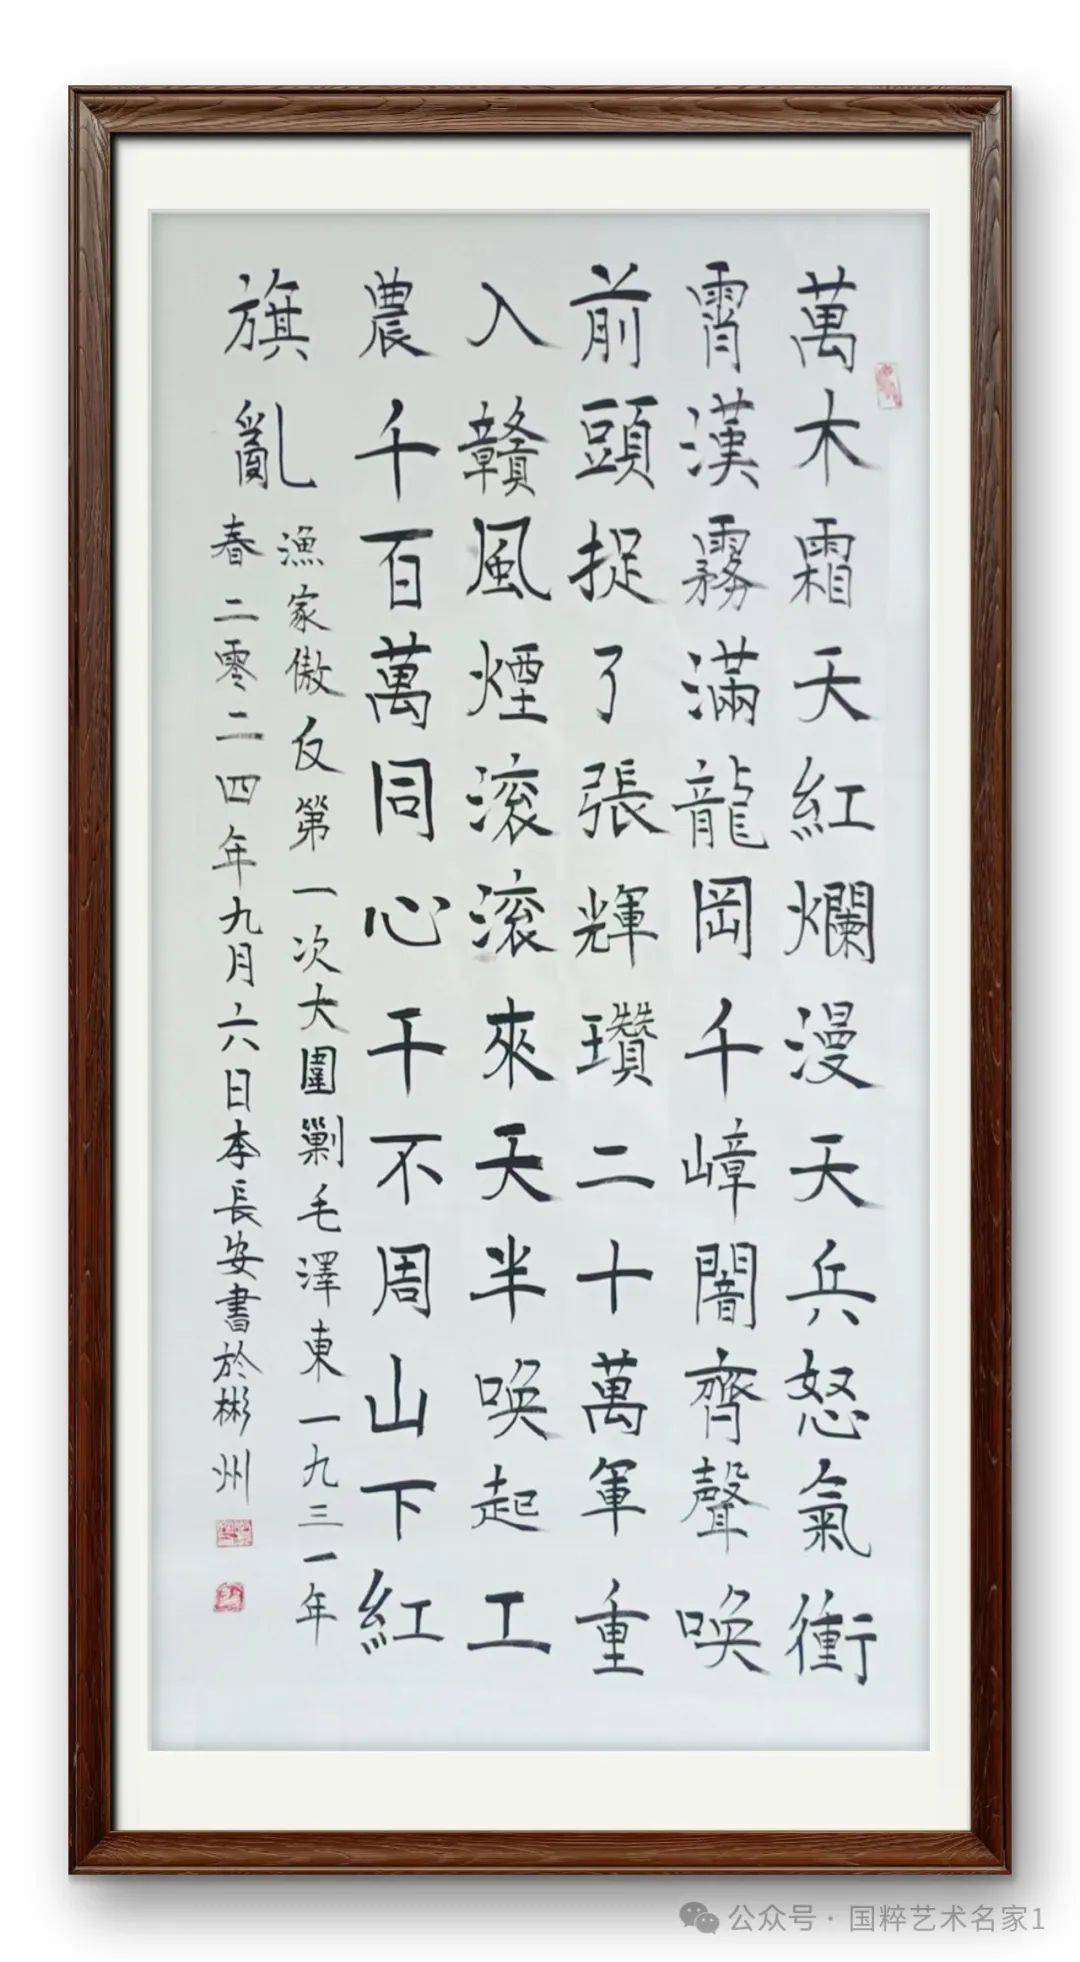 萬木霜天紅爛漫天兵怒氣衝
霄漢霧滿龍岡千嶂闇齊聲喚
前頭捉了張輝瓚二十萬軍重
入贛風煙滚滚來天半喚起工
農千百萬同心干不周山下紅
旗亂
漁家傲反第一次大圍剿毛澤東一九三一年
春二零二四年九月六日李長安書於彬州
公众号 · 国粹艺术名家1